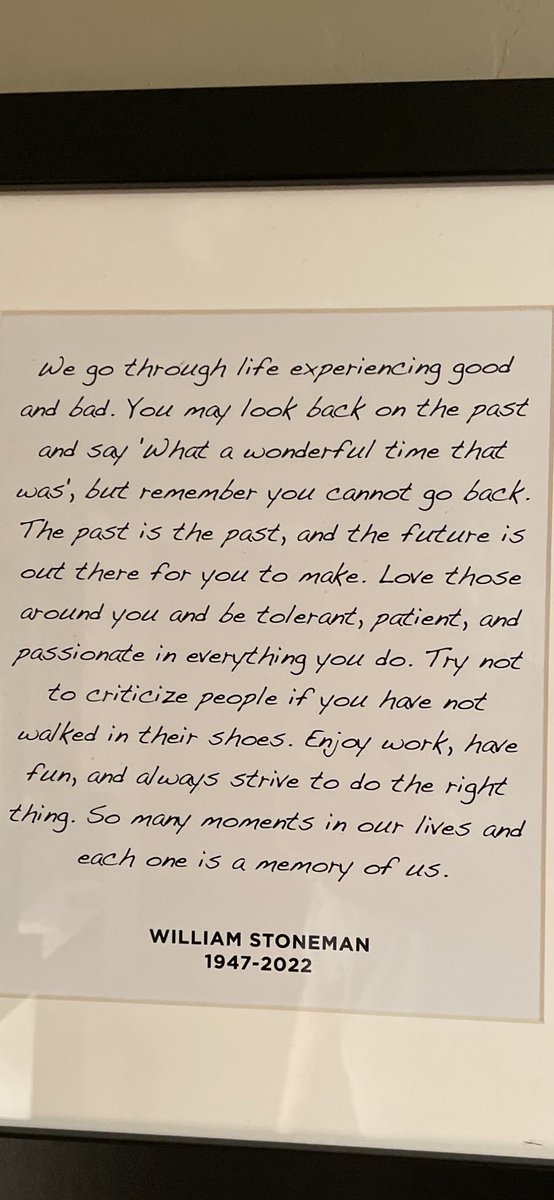 We go through life experiencing good
and bad. You may look back on the past
and say 'What a wonderful time that
was', but remember you cannot go back.
The past is the past, and the future is
out there for you to make. Love those
around you and be tolerant, patient, and
passionate in everything you do. Try not
to criticize people if you have not
walked in their shoes. Enjoy work, have
fun, and always strive to do the right
thing. So many moments in our lives and
each one is a memory of us.
WILLIAM STONEMAN
1947-2022